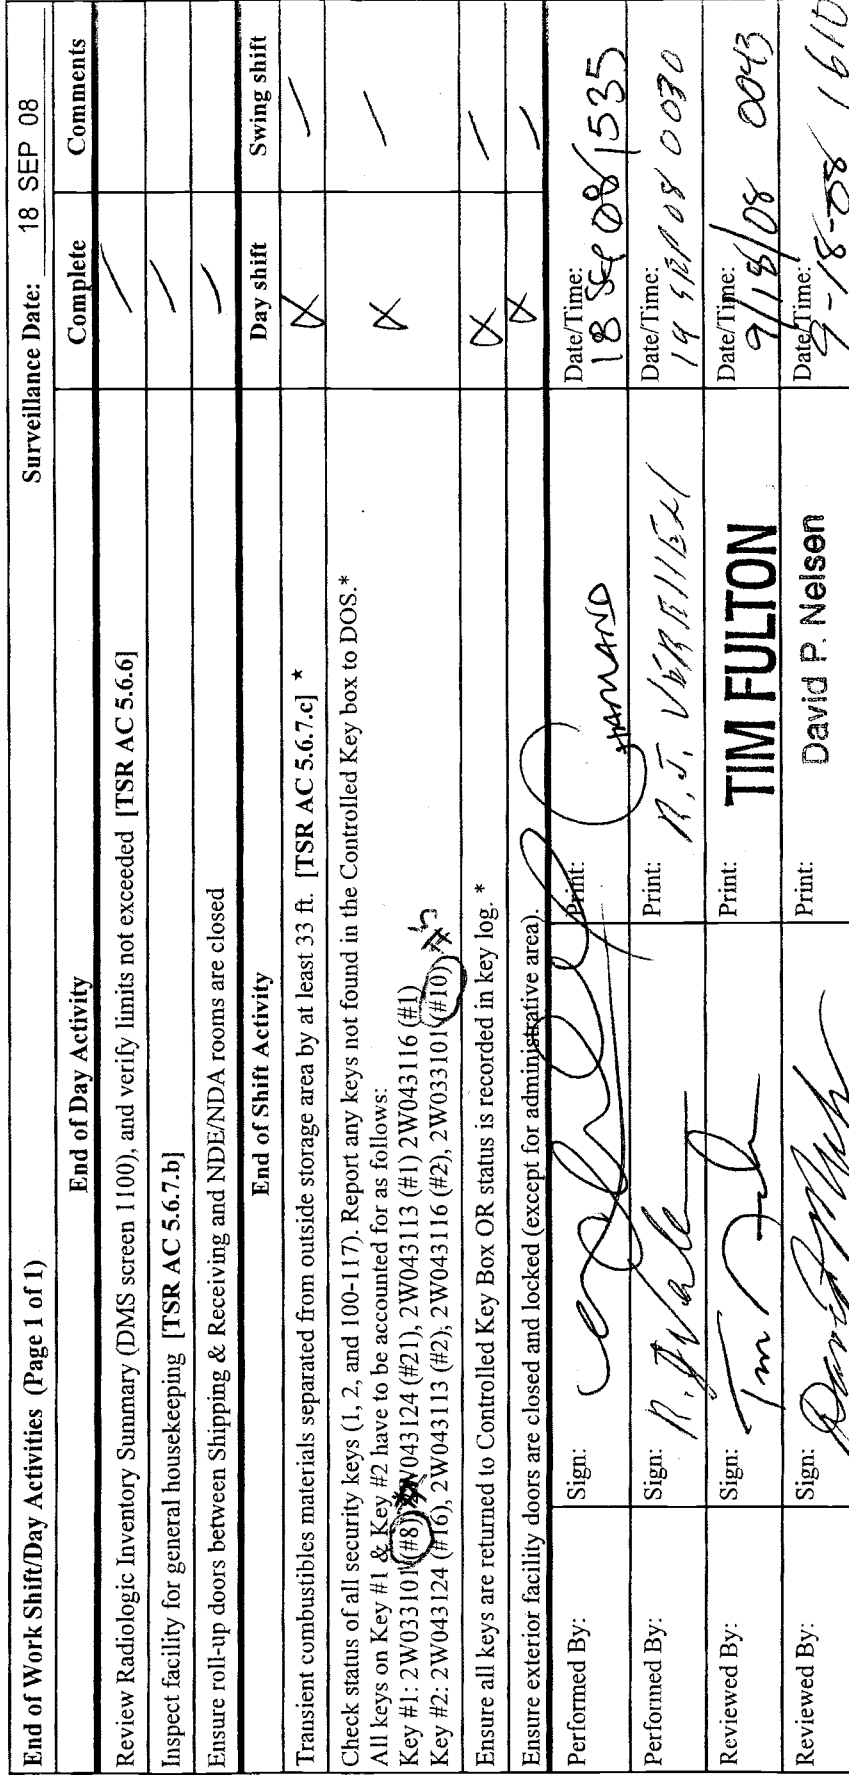 End of Work Shift/Day Activities (Page 1 of 1) Surveillance Date: 18 SEP 08
End of Day Activity Complete Comments
Review Radiologic Inventory Summary (DMS screen 1100), and verify limits not exceeded [TSR AC 5.6.6] /
Inspect facility for general housekeeping [TSR AC 5.6.7.b] /
Ensure roll-up doors between Shipping & Receiving and NDE/NDA rooms are closed /
End of Shift Activity Day shift Swing shift
Transient combustibles materials separated from outside storage area by at least 33 ft. [TSR AC 5.6.7.c] * X /
Check status of all security keys (1, 2, and 100-117). Report any keys not found in the Controlled Key box to DOS.* X /
All keys on Key #1 & Key #2 have to be accounted for as follows:
Key #1: 2W033101 (#8) 2W043124 (#21), 2W043113 (#1) 2W043116 (#1)
Key #2: 2W043124 (#16), 2W043113 (#2), 2W043116 (#2), 2W033101 (#10)
Ensure all keys are returned to Controlled Key Box OR status is recorded in key log. * X /
Ensure exterior facility doors are closed and locked (except for administrative area). X /
Performed By: Sign: Print: HAMAND Date/Time: 18 Sep 08/1535
Performed By: Sign: Print: R. J. Date/Time: 19 SEP 08 0030
Reviewed By: Sign: Tim Print: TIM FULTON Date/Time: 9/18/08 0043
Reviewed By: Sign: David Print: David P. Nelsen Date/Time: 9-18-08 1610